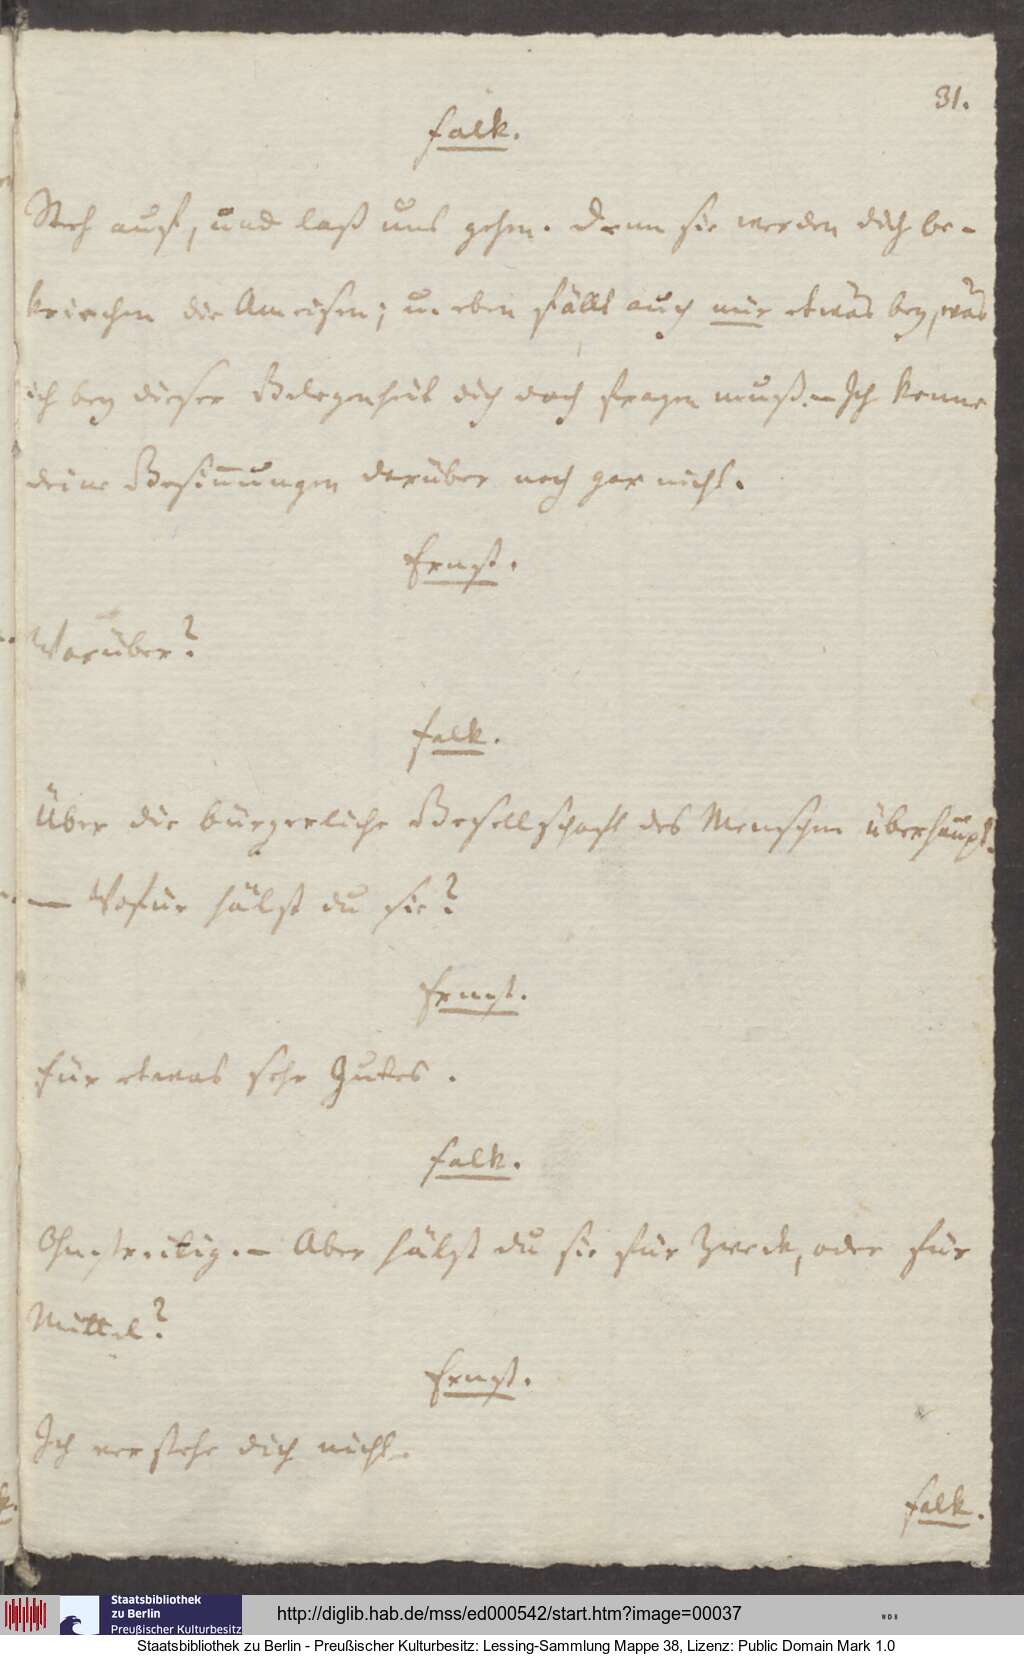 31.
Falk.
Steh auf, und laß uns gehen. Denn sie werden dich be-
kriechen die Ameisen; u. eben fällt auch mir etwas bey, was
ich bey dieser Gelegenheit dich doch fragen muß. – Ich kenne
deine Gesinnungen darüber noch gar nicht.
Ernst.
Worüber?
Falk.
Über die bürgerliche Gesellschaft des Menschen überhaupt.
— Wofür hälst du sie?
Ernst.
Für etwas sehr Gutes.
Falk.
Ohnstreitig. – Aber hälst du sie für Zweck, oder für
Mittel?
Ernst.
Ich verstehe dich nicht.
Falk.
Staatsbibliothek
zu Berlin
Preußischer Kulturbesitz
http://diglib.hab.de/mss/ed000542/start.htm?image=00037
WDB
Staatsbibliothek zu Berlin - Preußischer Kulturbesitz: Lessing-Sammlung Mappe 38, Lizenz: Public Domain Mark 1.0